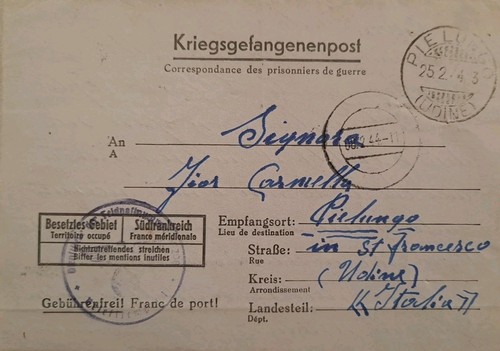 Kriegsgefangenenpost
Correspondance des prisonniers de guerre
PIELUNGO
25.2.43
(UDINE)
2.44-11
An Signora
A
Jior Carmella
Besetztes Gebiet Südfrankreich
Territoire occupé France méridionale
Nichtzutreffendes streichen
Biffer les mentions inutiles
Empfangsort: Pielungo
Lieu de destination
Straße: in St Francesco
Rue
Kreis: (Udine)
Arrondissement
Gebührenfrei! Franc de port!
Landesteil: (Italia)
Dépt.